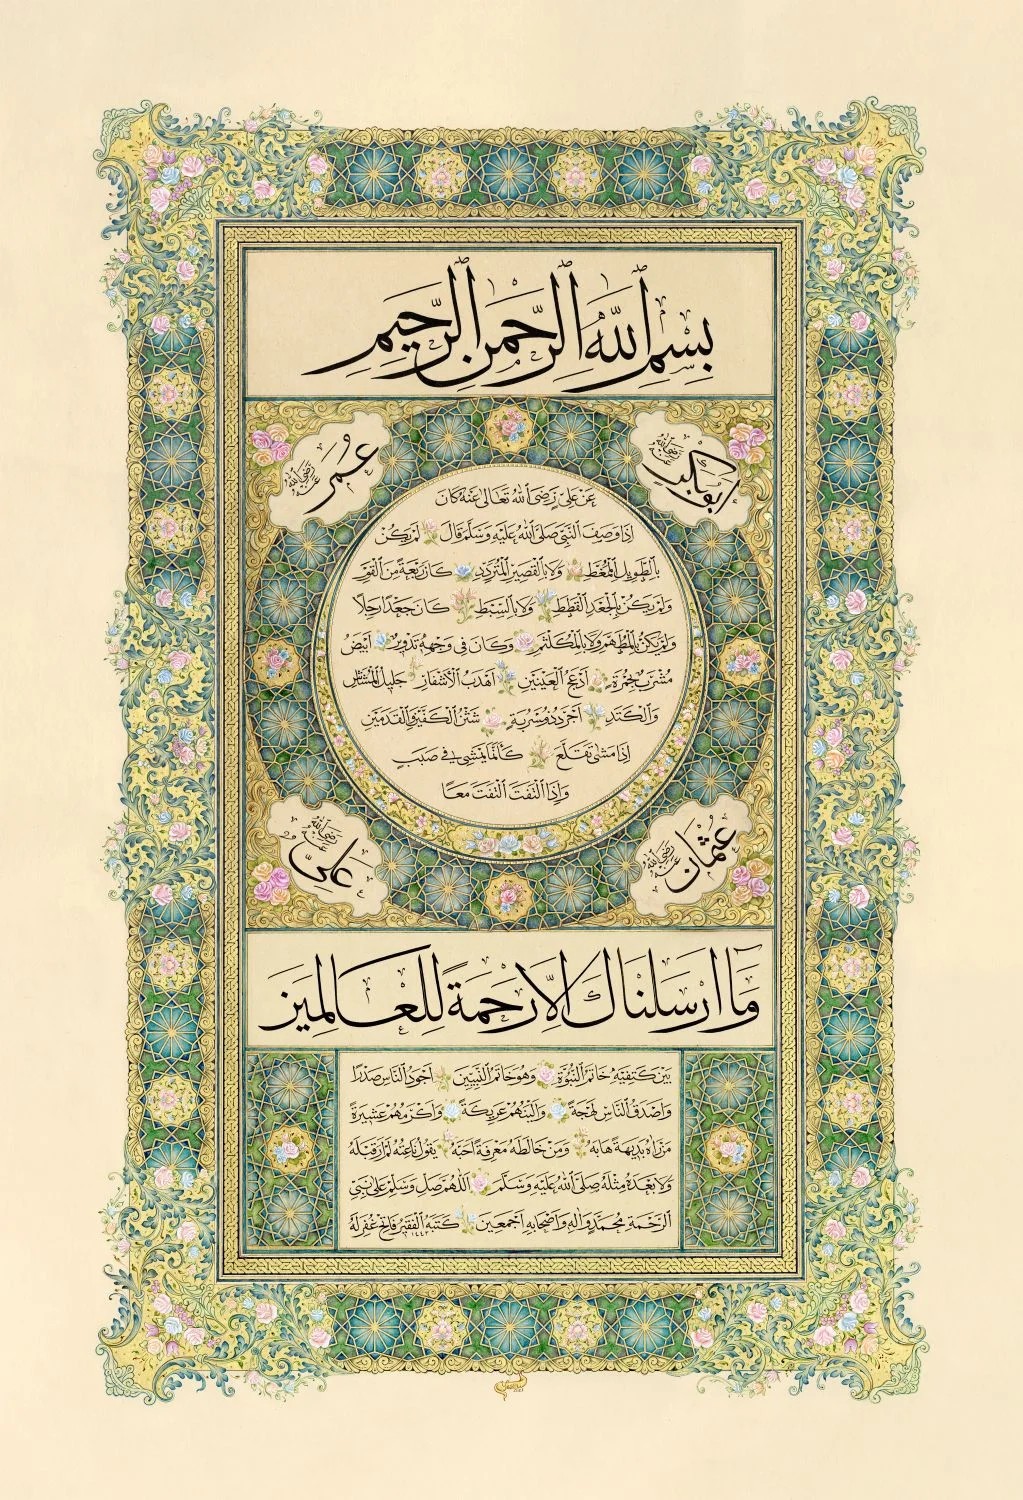 بِسْمِ اللهِ الرَّحْمٰنِ الرَّحِيمِ
اَبُوبَكْرٍ رَضِيَ اللهُ عَنْهُ
عُمَرُ رَضِيَ اللهُ عَنْهُ
عَنْ عَلِيٍّ رَضِيَ اللهُ تَعَالٰى عَنْهُ كَانَ
اِذَا وَصَفَ النَّبِيَّ صَلَّى اللهُ عَلَيْهِ وَسَلَّمَ قَالَ لَمْ يَكُنْ
بِالطَّوِيلِ الْمُمَّغِطِ وَلَا بِالْقَصِيرِ الْمُتَرَدِّدِ كَانَ رَبْعَةً مِنَ الْقَوْمِ
وَلَمْ يَكُنْ بِالْجَعْدِ الْقَطَطِ وَلَا بِالسَّبِطِ كَانَ جَعْدًا رَجِلًا
وَلَمْ يَكُنْ بِالْمُطَهَّمِ وَلَا بِالْمُكَلْثَمِ وَكَانَ فِي وَجْهِهِ تَدْوِيرٌ اَبْيَضُ
مُشْرَبٌ بِحُمْرَةٍ اَدْعَجُ الْعَيْنَيْنِ اَهْدَبُ الْاَشْفَارِ جَلِيلُ الْمُشَاشِ
وَالْكَتَدِ اَجْرَدُ ذُو مَسْرُبَةٍ شَثْنُ الْكَفَّيْنِ وَالْقَدَمَيْنِ
اِذَا مَشٰى تَقَلَّعَ كَاَنَّمَا يَمْشِي فِي صَبَبٍ
وَاِذَا الْتَفَتَ الْتَفَتَ مَعًا
عُثْمَانُ رَضِيَ اللهُ عَنْهُ
عَلِيٌّ رَضِيَ اللهُ عَنْهُ
وَمَا اَرْسَلْنَاكَ اِلَّا رَحْمَةً لِلْعَالَمِينَ
بَيْنَ كَتِفَيْهِ خَاتَمُ النُّبُوَّةِ وَهُوَ خَاتَمُ النَّبِيِّينَ اَجْوَدُ النَّاسِ صَدْرًا
وَاَصْدَقُ النَّاسِ لَهْجَةً وَاَلْيَنُهُمْ عَرِيكَةً وَاَكْرَمُهُمْ عَشِيرَةً
مَنْ رَاٰهُ بَدِيهَةً هَابَهُ وَمَنْ خَالَطَهُ مَعْرِفَةً اَحَبَّهُ يَقُولُ نَاعِتُهُ لَمْ اَرَ قَبْلَهُ
وَلَا بَعْدَهُ مِثْلَهُ صَلَّى اللهُ عَلَيْهِ وَسَلَّمَ اَللّٰهُمَّ صَلِّ وَسَلِّمْ عَلٰى نَبِيِّ
الرَّحْمَةِ مُحَمَّدٍ وَاٰلِهِ وَاَصْحَابِهِ اَجْمَعِينَ كَتَبَهُ الْفَقِيرُ فَاتِحُ غُفِرَ لَهُ ١٤٤٣